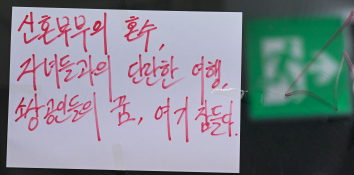 신혼부부의 혼수,
자녀들과의 단란한 여행,
소상공인들의 꿈, 여기 잠들다.